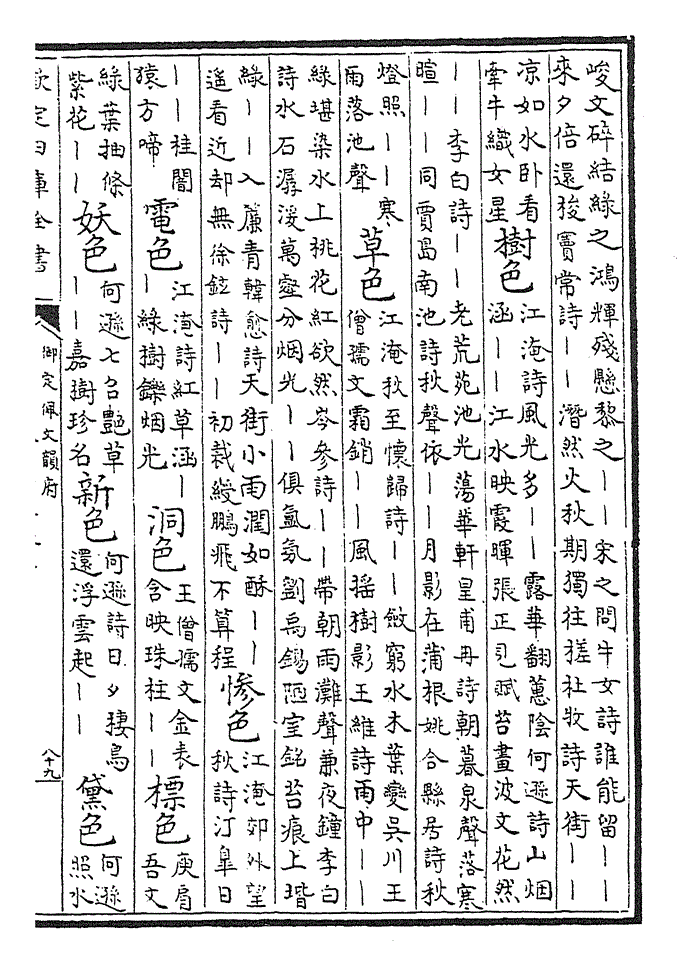 峻文碎結綠之鴻輝殘懸黎之——宋之問牛女詩誰能留——
來夕倍還狻竇常詩——潛然火秋期獨往搓杜牧詩天街——
凉如水卧看
牽牛織女星
樹色
江淹詩風光多——露華翻蕙陰何遜詩山烟
涵——江水映霞暉張正見賦苔畫波文花然
——李白詩——老荒苑池光蕩華軒皇甫冉詩朝暮泉聲落寒
暄——同賈島南池詩秋聲依——月影在蒲根姚合縣居詩秋
燈照——寒
雨落池聲
草色
江淹秋至懷歸詩——歛窮水木葉變吳川王
僧孺文霜銷——風摇樹影王維詩雨中——
綠堪染水上桃花紅欲然岑參詩——帶朝雨灘聲兼夜鐘李白
詩水石潺湲萬壑分烟光——俱氤氛劉禹錫陋室銘苔痕上堦
綠——入簾青韓愈詩天街小雨潤如酥——
遥看近却無徐鉉詩——初裁綬鵬飛不算程
惨色
江淹郊外望
秋詩汀皐日
——桂闇
猿方啼
電色
江淹詩紅草涵—
—綠樹鑠烟光
洞色
王僧孺文金表
含映珠柱——
標色
庾肩
吾文
綠葉抽條
紫花——
妖色
何遜七召艶草
——嘉樹珍名
新色
何遜詩日夕棲鳥
還浮雲起——
黛色
何遜
照水
欽定四庫全書
御定佩文韻府
八十九